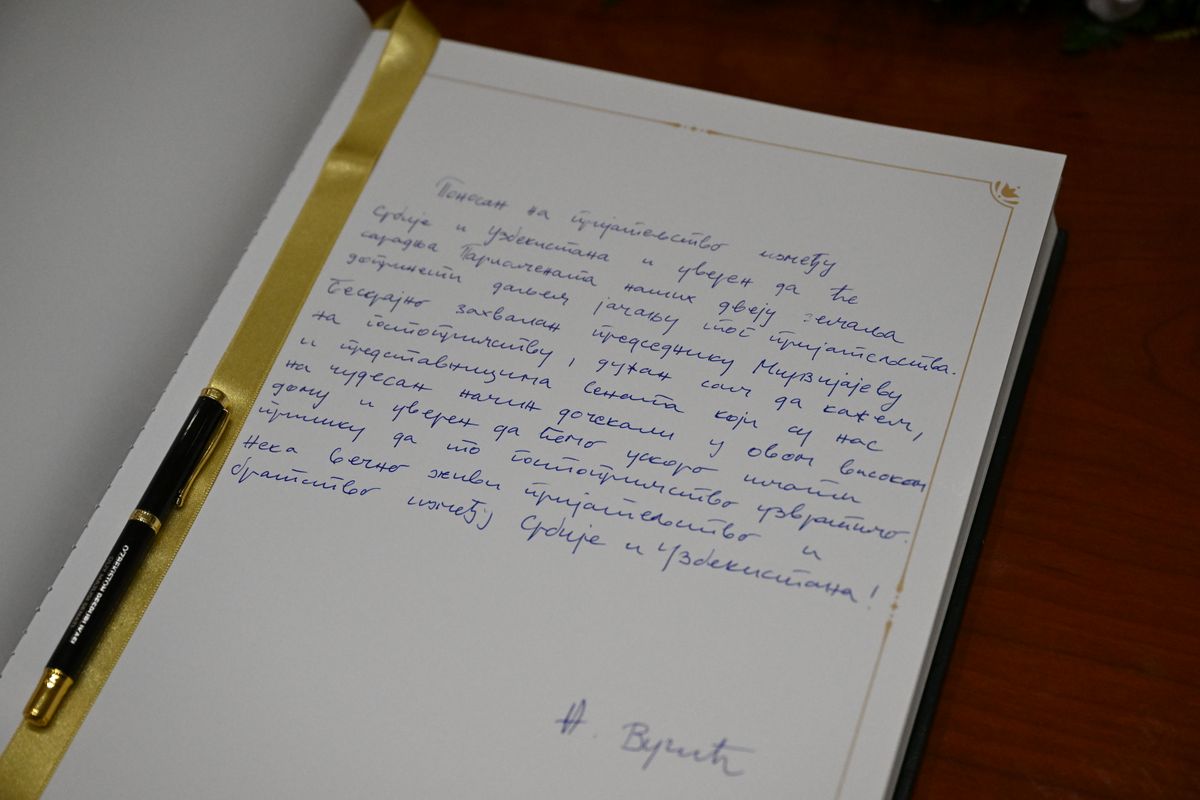 Поносан на пријатељство између
Србије и Узбекистана и уверен да ће
сарадња Парламената наших двеју земаља
допринети даљем јачању тог пријатељства.
Бескрајно захвалан председнику Мирзијајеву
на гостопримству, дужан сам да кажем,
и представницима Сената који су нас
на чудесан начин дочекали у овом високом
дому и уверен да ћемо ускоро имати
прилику да то гостопримство узвратимо.
Нека вечно живи пријатељство и
братство између Србије и Узбекистана!
А. Вучић